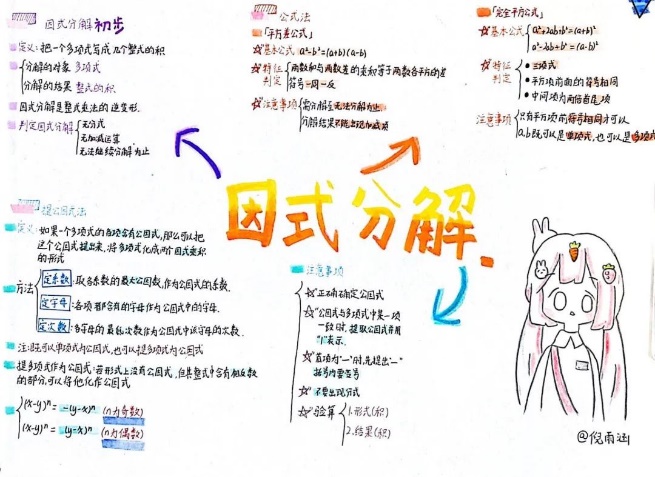 因式分解初步
定义：把一个多项式写成几个整式的积
分解的对象 多项式
分解的结果 整式的积
因式分解是整式乘法的逆变形.
判定因式分解
无分式
无加减运算
无法继续分解为止
公式法
「平方差公式」
基本公式 a²-b²=(a+b)(a-b)
特征
判定
两数和与两数差的乘积等于两数各平方的差
符号一同一反
注意事项
需分解至无法分解为止
分解结果不能出现加减项
「完全平方公式」
基本公式
a²+2ab+b²=(a+b)²
a²-2ab+b²=(a-b)²
特征
判定
三项式
平方项前面的符号相同
中间项为两倍首尾项
注意事项
只有平方项前符号相同才可以
a,b既可以是单项式,也可以是多项式
因式分解.
提公因式法
定义:如果一个多项式的各项含有公因式,那么可以把
这个公因式提出来,将多项式化成两个因式乘积
的形式
方法
定系数:取各系数的最大公因数,作为公因式的系数.
定字母:各项都含有的字母作为公因式中的字母.
定次数:各字母的最低次数作为公因式中该字母的次数.
注:既可以单项式为公因式,也可以提多项式为公因式
提多项式作为公因式:若形式上没有公因式,但其整式中含有相反数
的部分,可以将他化作公因式
(x-y)ⁿ = -(y-x)ⁿ (n为奇数)
(x-y)ⁿ = (y-x)ⁿ (n为偶数)
注意事项
正确确定公因式
"公因式与多项式中某一项
一致时,提取公因式并用
"1"表示.
"首项为"-"时,先提出"-"
括号内要变号
不要出现分式
验算
1.形式(积)
2.结果(积)
@倪雨涵